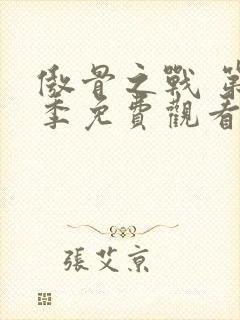 傲骨之戰 第
季免費觀看
張艾京